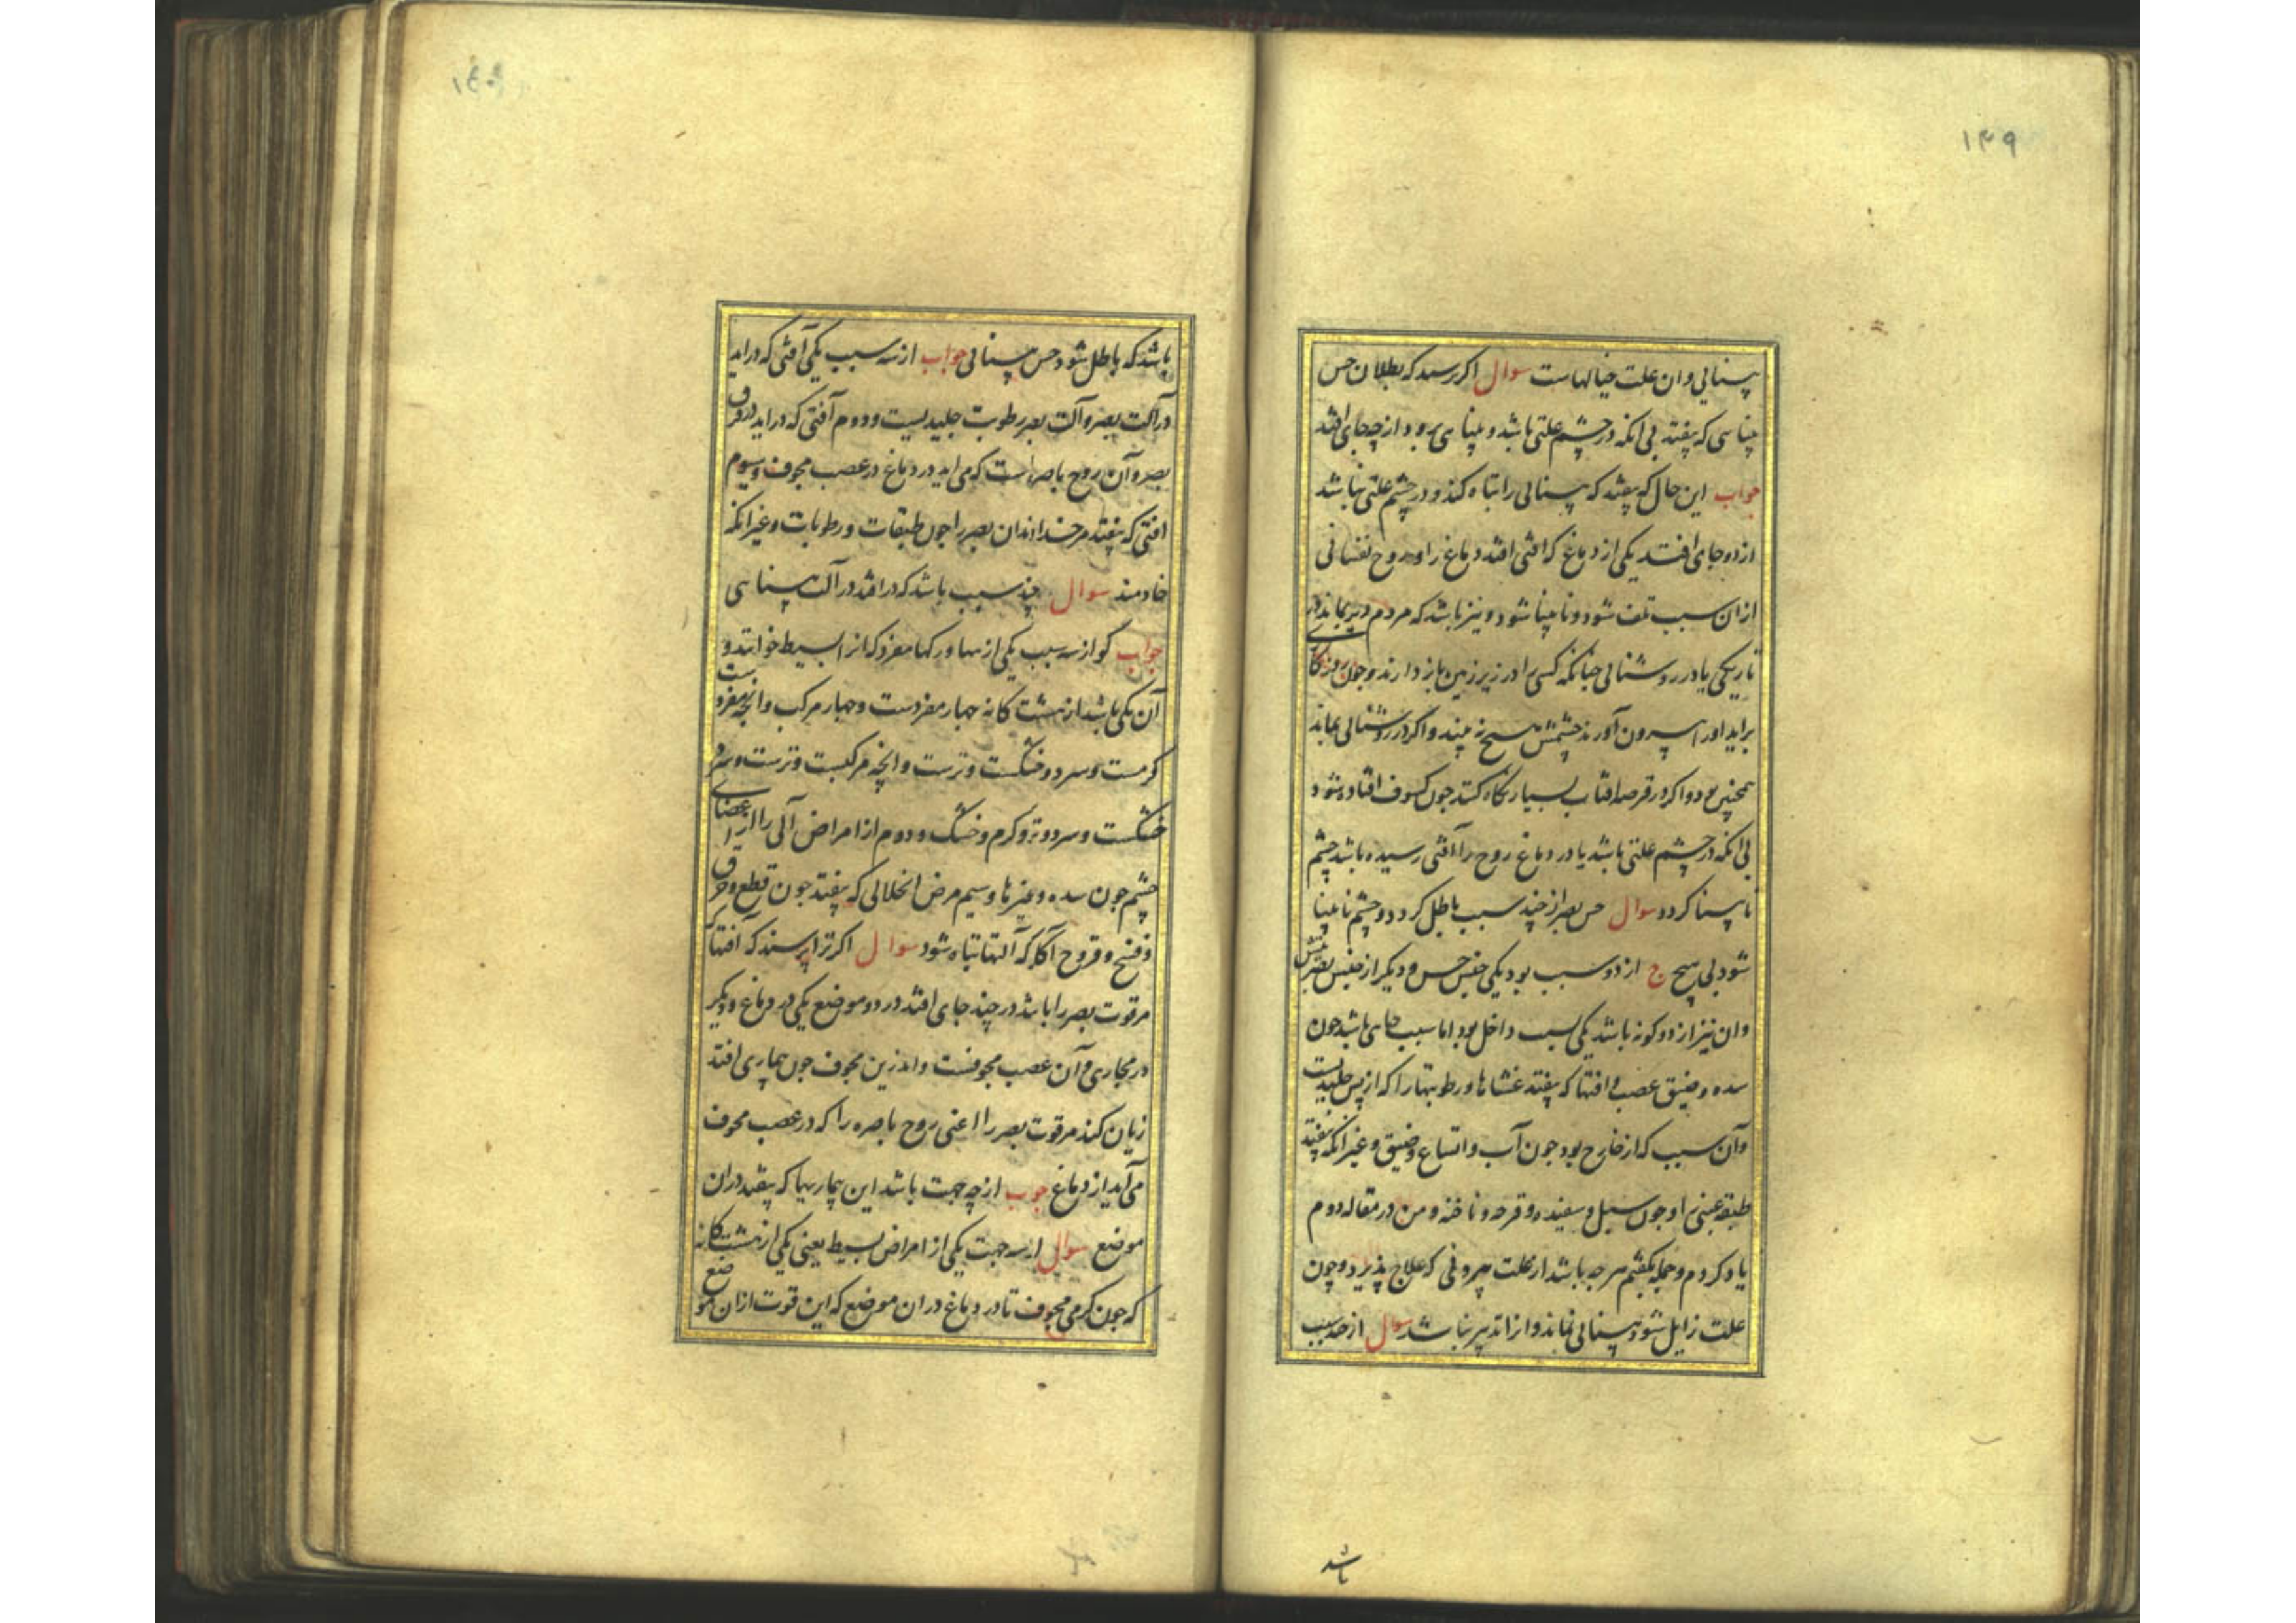 ۱۴۹
بینائی وان علت خیالهاست سوال اکر پرسند که بطلان حس
بینایی که بیفتد بی انکه در چشم علتی باشد و بینایی برود از چه جای افتد
جواب این حال که بیفتد که بینائی را تباه کند و در چشم علتی نباشد
از دو جای افتد یکی از دماغ که افتی افتد دماغ را و روح نفسانی
ازان سبب تلف شود و نابینا شود و نیز باشد که مردم دیر بماند در
تاریکی یا در روشنائی چنانکه کسی را در زیر زمین باز دارند و چون روزکاری
براید او را بیرون آورند چشمش هیچ نه بیند و اکر در روشنائی بماند
همچنین بود و اکر در قرصه افتاب بسیار نکاه کند چون کسوف افتاده شود
بی انکه در چشم علتی باشد یا در دماغ روح را آفتی رسیده باشد چشم
نابینا کردد سوال حس بصر از چند سبب باطل کردد و چشم نابینا
شود بی هیچ ج از دو سبب بود یکی جنس حس و دیکر از جنس
وان نیز از دو کونه باشد یکی سبب داخل بود اما سبب باشد چون
سده و ضیق عصب و افتها که بیفتد غشاها و رطوبتها را که از پس جلیدیست
وآن سبب که از خارج بود چون آب و اتساع و ضیق و غیر انکه بیفتد
طبقه عنبی را و چون سبل و سفیده و قرحه و ناخنه و من در مقاله دوم
یاد کردم و جمله بکفتم هرچه باشد از علت بیرونی که علاج پذیرد و چون
علت زایل شود بینائی نماند و انرا تدبیر نباشد سوال از چند سبب
باشد
باشد که باطل شود حس بینائی جواب از سه سبب یکی آفتی که دراید
در آلت بصر و آلت بصر رطوبت جلیدیست و دوم آفتی که دراید در قوت
بصر و آن روح باصره است که می اید در دماغ در عصب مجوف و سیوم
افتی که بیفتد مر خداوندان بصر را چون طبقات و رطوبات و غیر انکه
خادمند سوال چند سبب باشد که درافتد در آلت بینایی
جواب کو از سه سبب یکی از بیماریها مفرد که انرا بسیط خوانند و
آن یکی باشد از هشت کانه چهار مفردست و چهار مرکب و انچه مفردست
کرمست و سرد و خشکست و ترست و انچه مرکبست و ترست و سرد
خشکست و سرد و تر و کرم و خشک و دوم از امراض آلی را از اعضای
چشم چون سده و غیرها و سیم مرض انحلالی که بیفتد چون قطع و خرق
و فسخ و قروح آکله که آلتها تباه شود سوال اکر ترا پرسند که آفتها که
مر قوت بصر را باشد در چند جای افتد در دو موضع یکی در دماغ و دیکر
در مجاری و آن عصب مجوفست و اندرین مجوف چون بیماری افتد
زیان کند مر قوت بصر را اعنی روح باصره را که در عصب مجوف
می آید از دماغ جوب از چه جهت باشد این بیماریها که بیفتد دران
موضع سوال از سه جهت یکی از امراض بسیط یعنی یکی از هشت کانه
که چون کرمی مجوف تا در دماغ دران موضع که این قوت ازان موضع